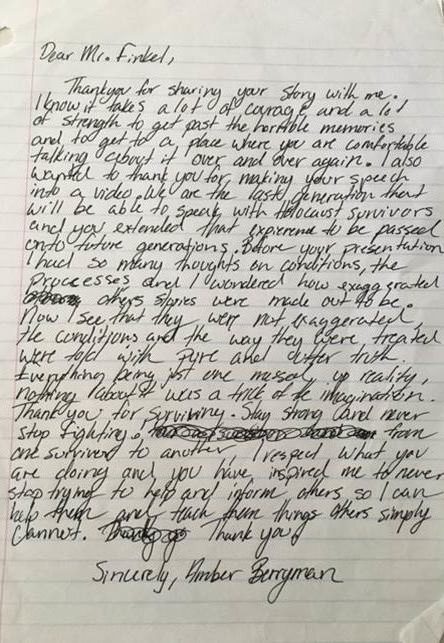 Dear Mr. Finkel,
Thankyou for sharing your story with me.
I know it takes a lot of courage and a lot
of strength to get past the horrible memories
and to get to a place where you are comfortable
talking about it over and over again. I also
wanted to thank you for making your speech
into a video. We are the last generation that
will be able to speak with Holocaust survivors
and you extended that expirence to be passed
onto future generations. Before your presentation
I had so many thoughts on conditions, the
processes and I wondered how exaggerated
others stories were made out to be.
Now I see that they were not exaggerated,
the conditions and the way they were treated
were told with pure and utter truth.
Everything being just one messed up reality,
nothing about it was a trick of the imagination.
Thank you for surviving. Stay strong and never
stop fighting, from
one survivor to another I respect what you
are doing and you have inspired me to never
stop trying to help and inform others, so I can
help them and teach them things others simply
cannot. Thank you!
Sincerely, Amber Berryman